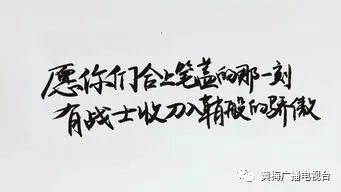 愿你们合上笔盖的那一刻
有战士收刀入鞘般的骄傲
黄海广播电视台